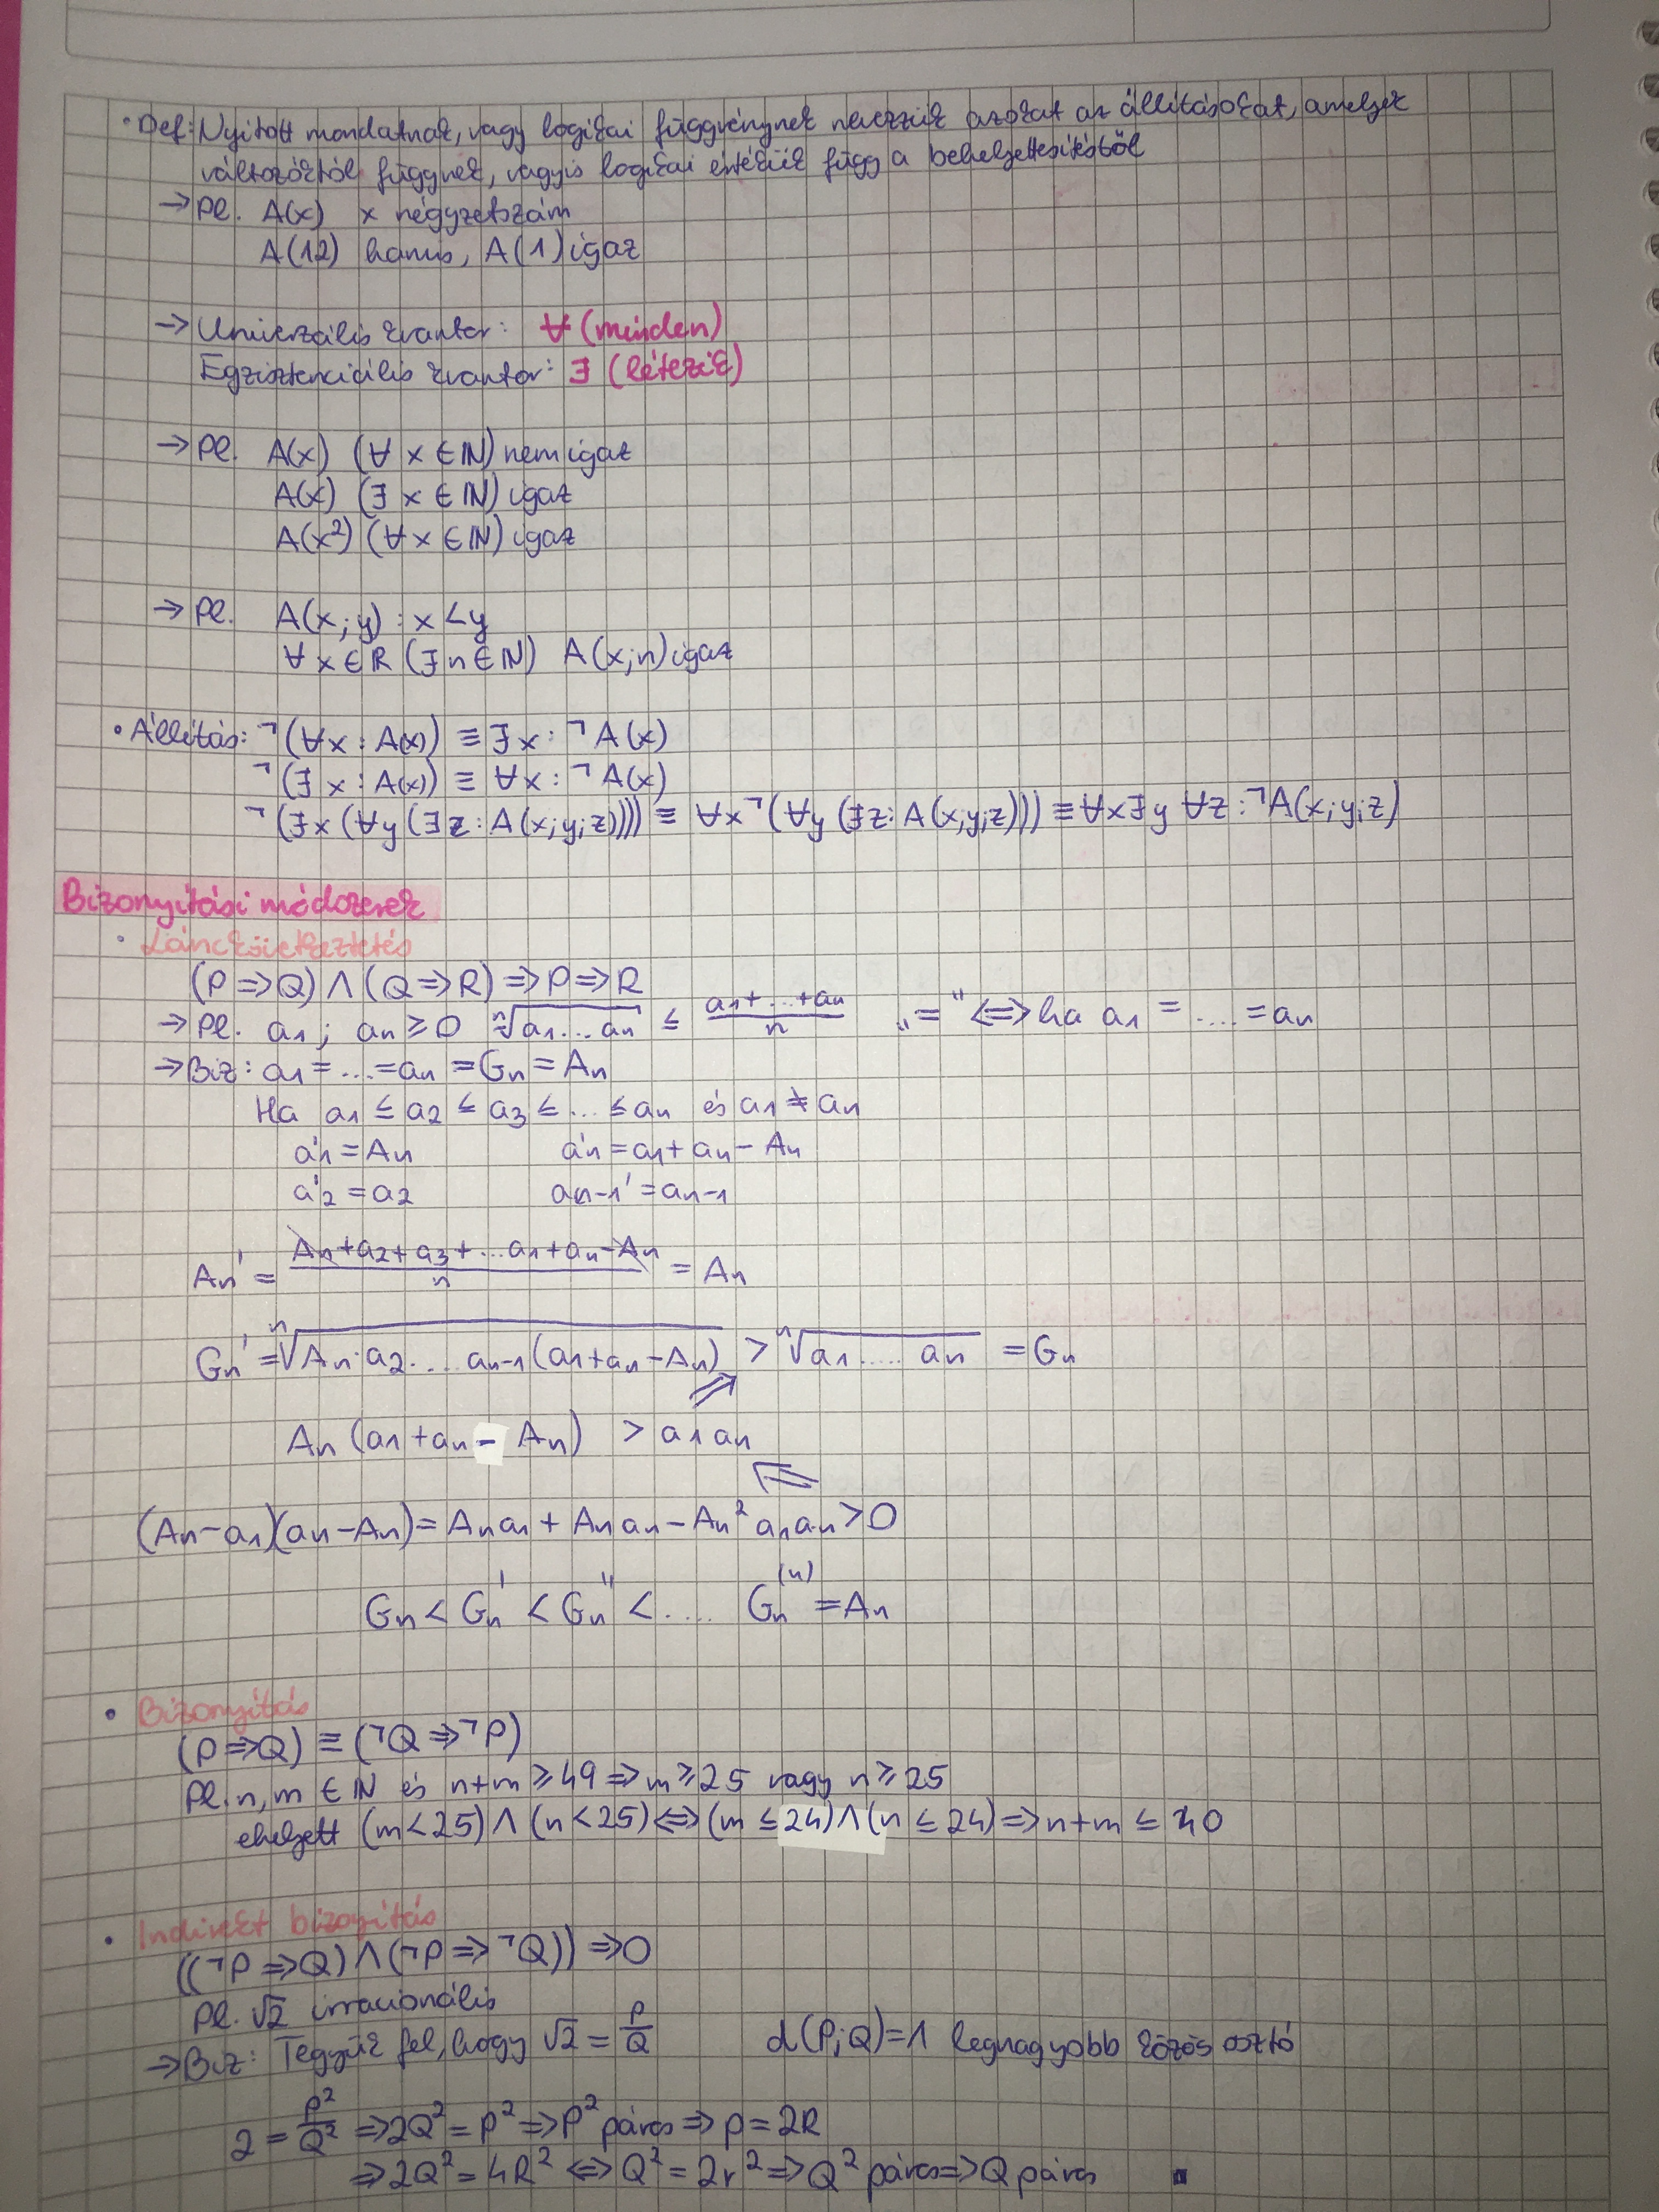 • Def: Nyitott mondatnak, vagy logikai függvénynek nevezzük azokat az állításokat, amelyek
változóktól függnek, vagyis logikai értékük függ a behelyettesítéstől
→ Pl. A(x) x négyzetszám
A(12) hamis, A(1) igaz
→ Univerzális kvantor: ∀ (minden)
Egzisztenciális kvantor: ∃ (létezik)
→ Pl. A(x) (∀ x ∈ ℕ) nem igaz
A(x) (∃ x ∈ ℕ) igaz
A(x²) (∀ x ∈ ℕ) igaz
→ Pl. A(x;y) : x < y
∀ x ∈ ℝ (∃ n ∈ ℕ) A(x;n) igaz
• Állítás: ¬(∀x : A(x)) ≡ ∃x : ¬A(x)
¬(∃x : A(x)) ≡ ∀x : ¬A(x)
¬(∃x (∀y (∃z : A(x;y;z)))) ≡ ∀x ¬(∀y (∃z : A(x;y;z))) ≡ ∀x ∃y ∀z : ¬A(x;y;z)
Bizonyítási módszerek
• Láncszövetkeztetés
(P ⇒ Q) ∧ (Q ⇒ R) ⇒ P ⇒ R
→ Pl. a₁ ; an ≥ 0 ⁿ√(a₁ ... an) ≤ (a₁ + ... + an)/n „=" ⇔ ha a₁ = .... = an
→ Biz: a₁ = ... = an = Gn = An
Ha a₁ ≤ a₂ ≤ a₃ ≤ ... ≤ an és a₁ ≠ an
a₁' = An an' = a₁ + an − An
a₂' = a₂ an-1' = an-1
An' = (An + a₂ + a₃ + ... a₁ + an − An)/n = An
Gn' = ⁿ√(An · a₂ .... an-1 (a₁ + an − An)) > ⁿ√(a₁ ..... an) = Gn
⇗
An (a₁ + an − An) > a₁ an
⇖
(An − a₁)(an − An) = An a₁ + An an − An² a₁ an > 0
Gn < Gn' < Gn'' < .... Gn⁽ⁿ⁾ = An
• Bizonyítás
(P ⇒ Q) ≡ (¬Q ⇒ ¬P)
Pl. n, m ∈ ℕ és n+m ≥ 49 ⇒ m ≥ 25 vagy n ≥ 25
ehelyett (m < 25) ∧ (n < 25) ⇔ (m ≤ 24) ∧ (n ≤ 24) ⇒ n+m ≤ 40
• Indirekt bizonyítás
((¬P ⇒ Q) ∧ (¬P ⇒ ¬Q)) ⇒ 0
Pl. √2 irracionális
→ Biz: Tegyük fel, hogy √2 = P/Q d(P;Q) = 1 legnagyobb közös osztó
2 = P²/Q² ⇒ 2Q² = P² ⇒ P² páros ⇒ p = 2R
⇒ 2Q² = 4R² ⇔ Q² = 2r² ⇒ Q² páros ⇒ Q páros ▪